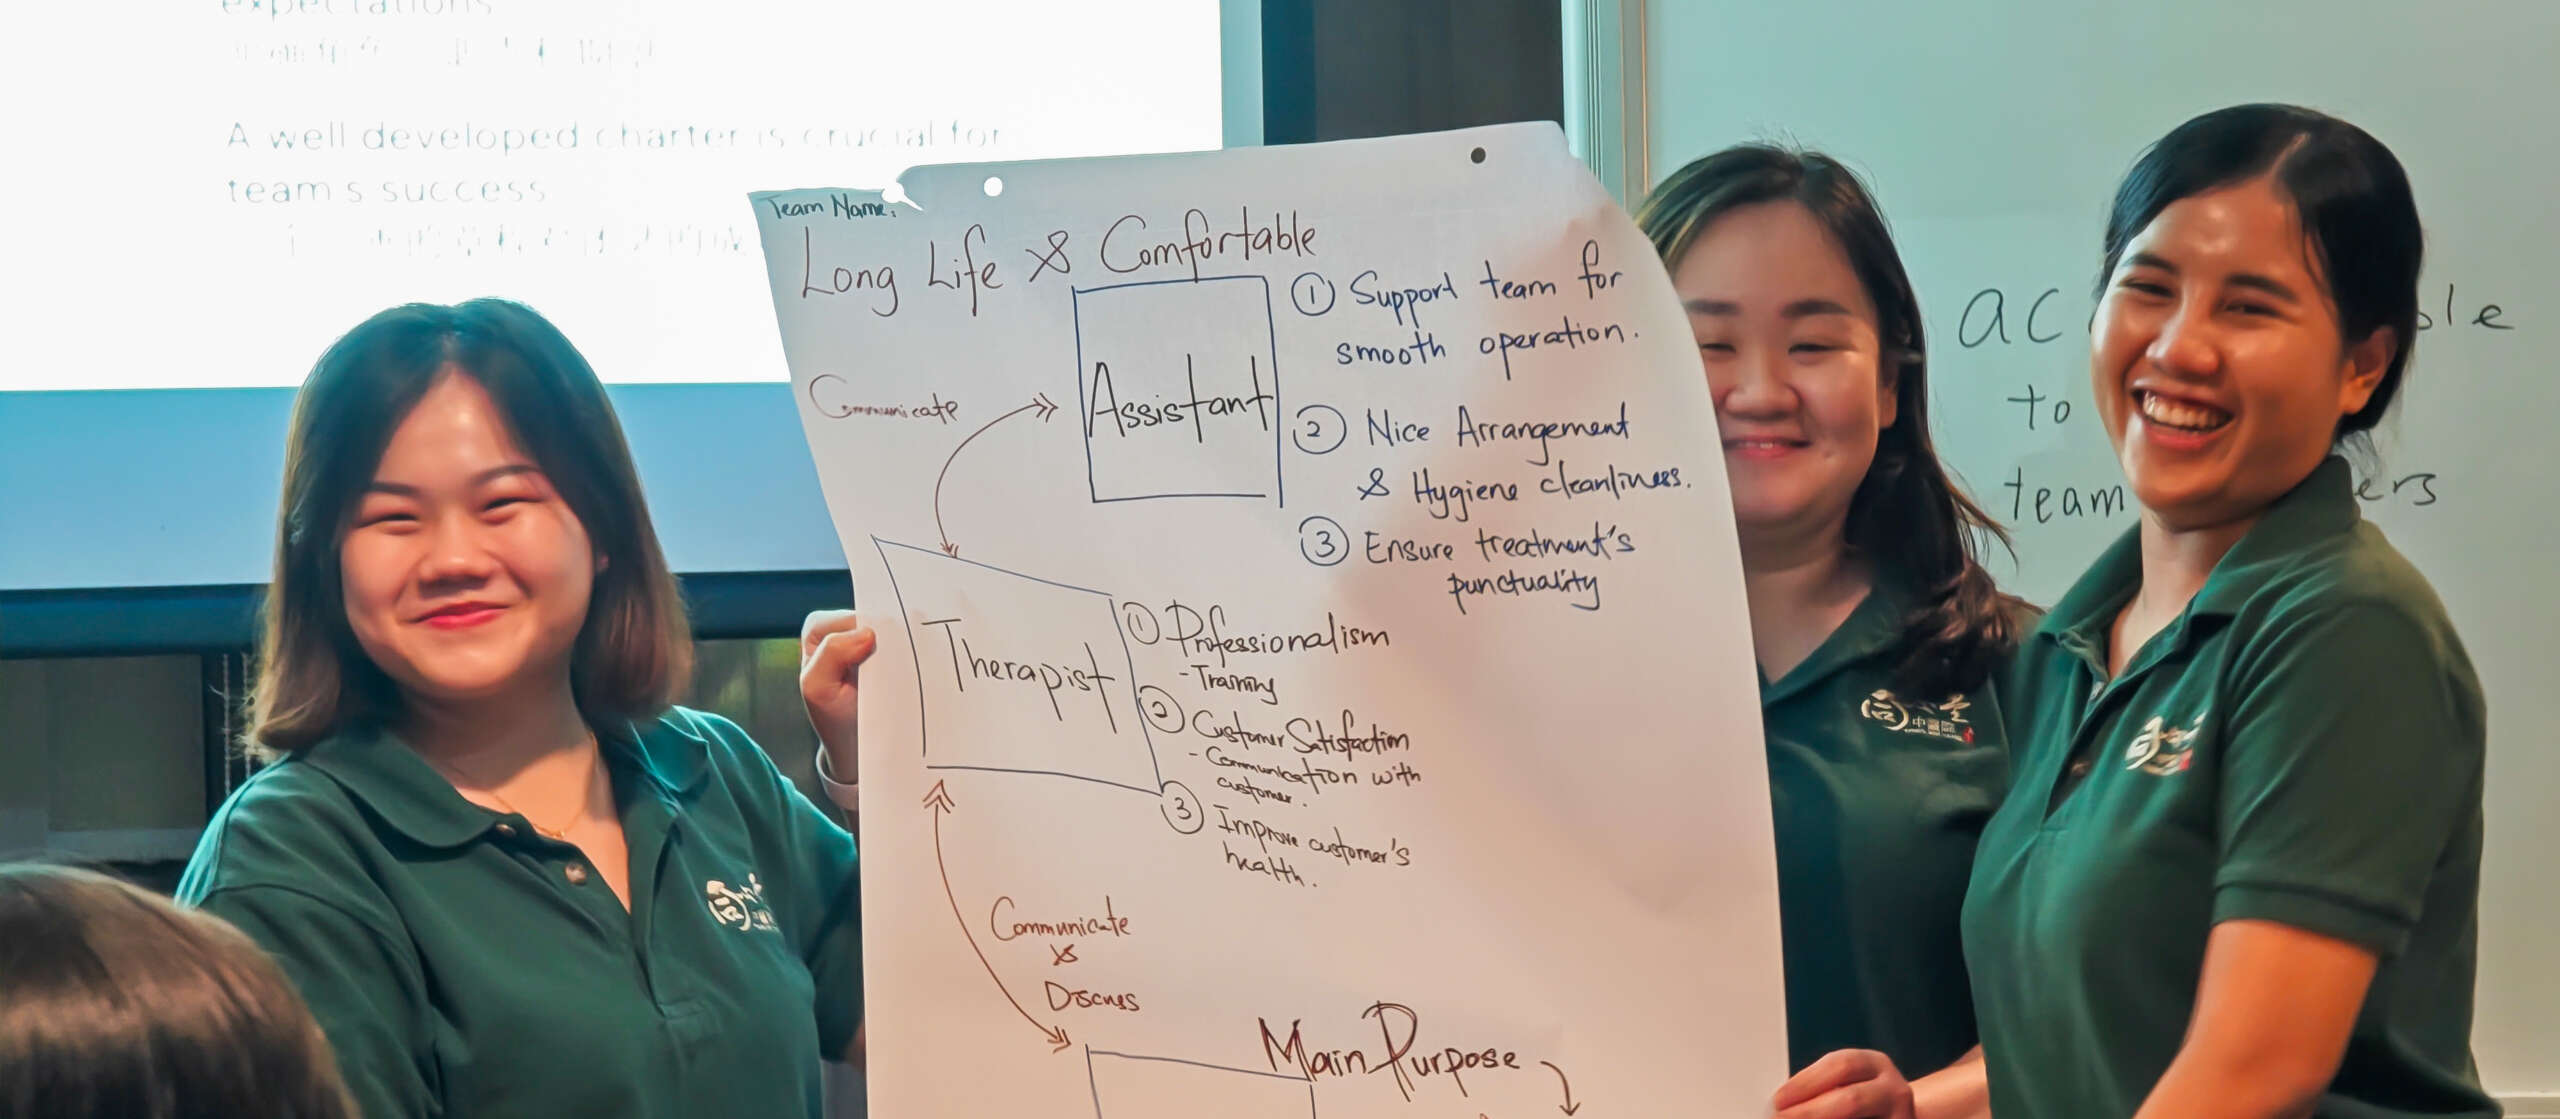 expectations
A well developed charter is crucial for
team s success
Team Name:
Long Life & Comfortable
Assistant
① Support team for
smooth operation.
② Nice Arrangement
& Hygiene cleanliness.
③ Ensure treatment's
punctuality
Communicate
Therapist
① Professionalism
- Training
② Customer Satisfaction
- Communication with
customer.
③ Improve customer's
health.
Communicate
&
Discuss
Main Purpose
to
team